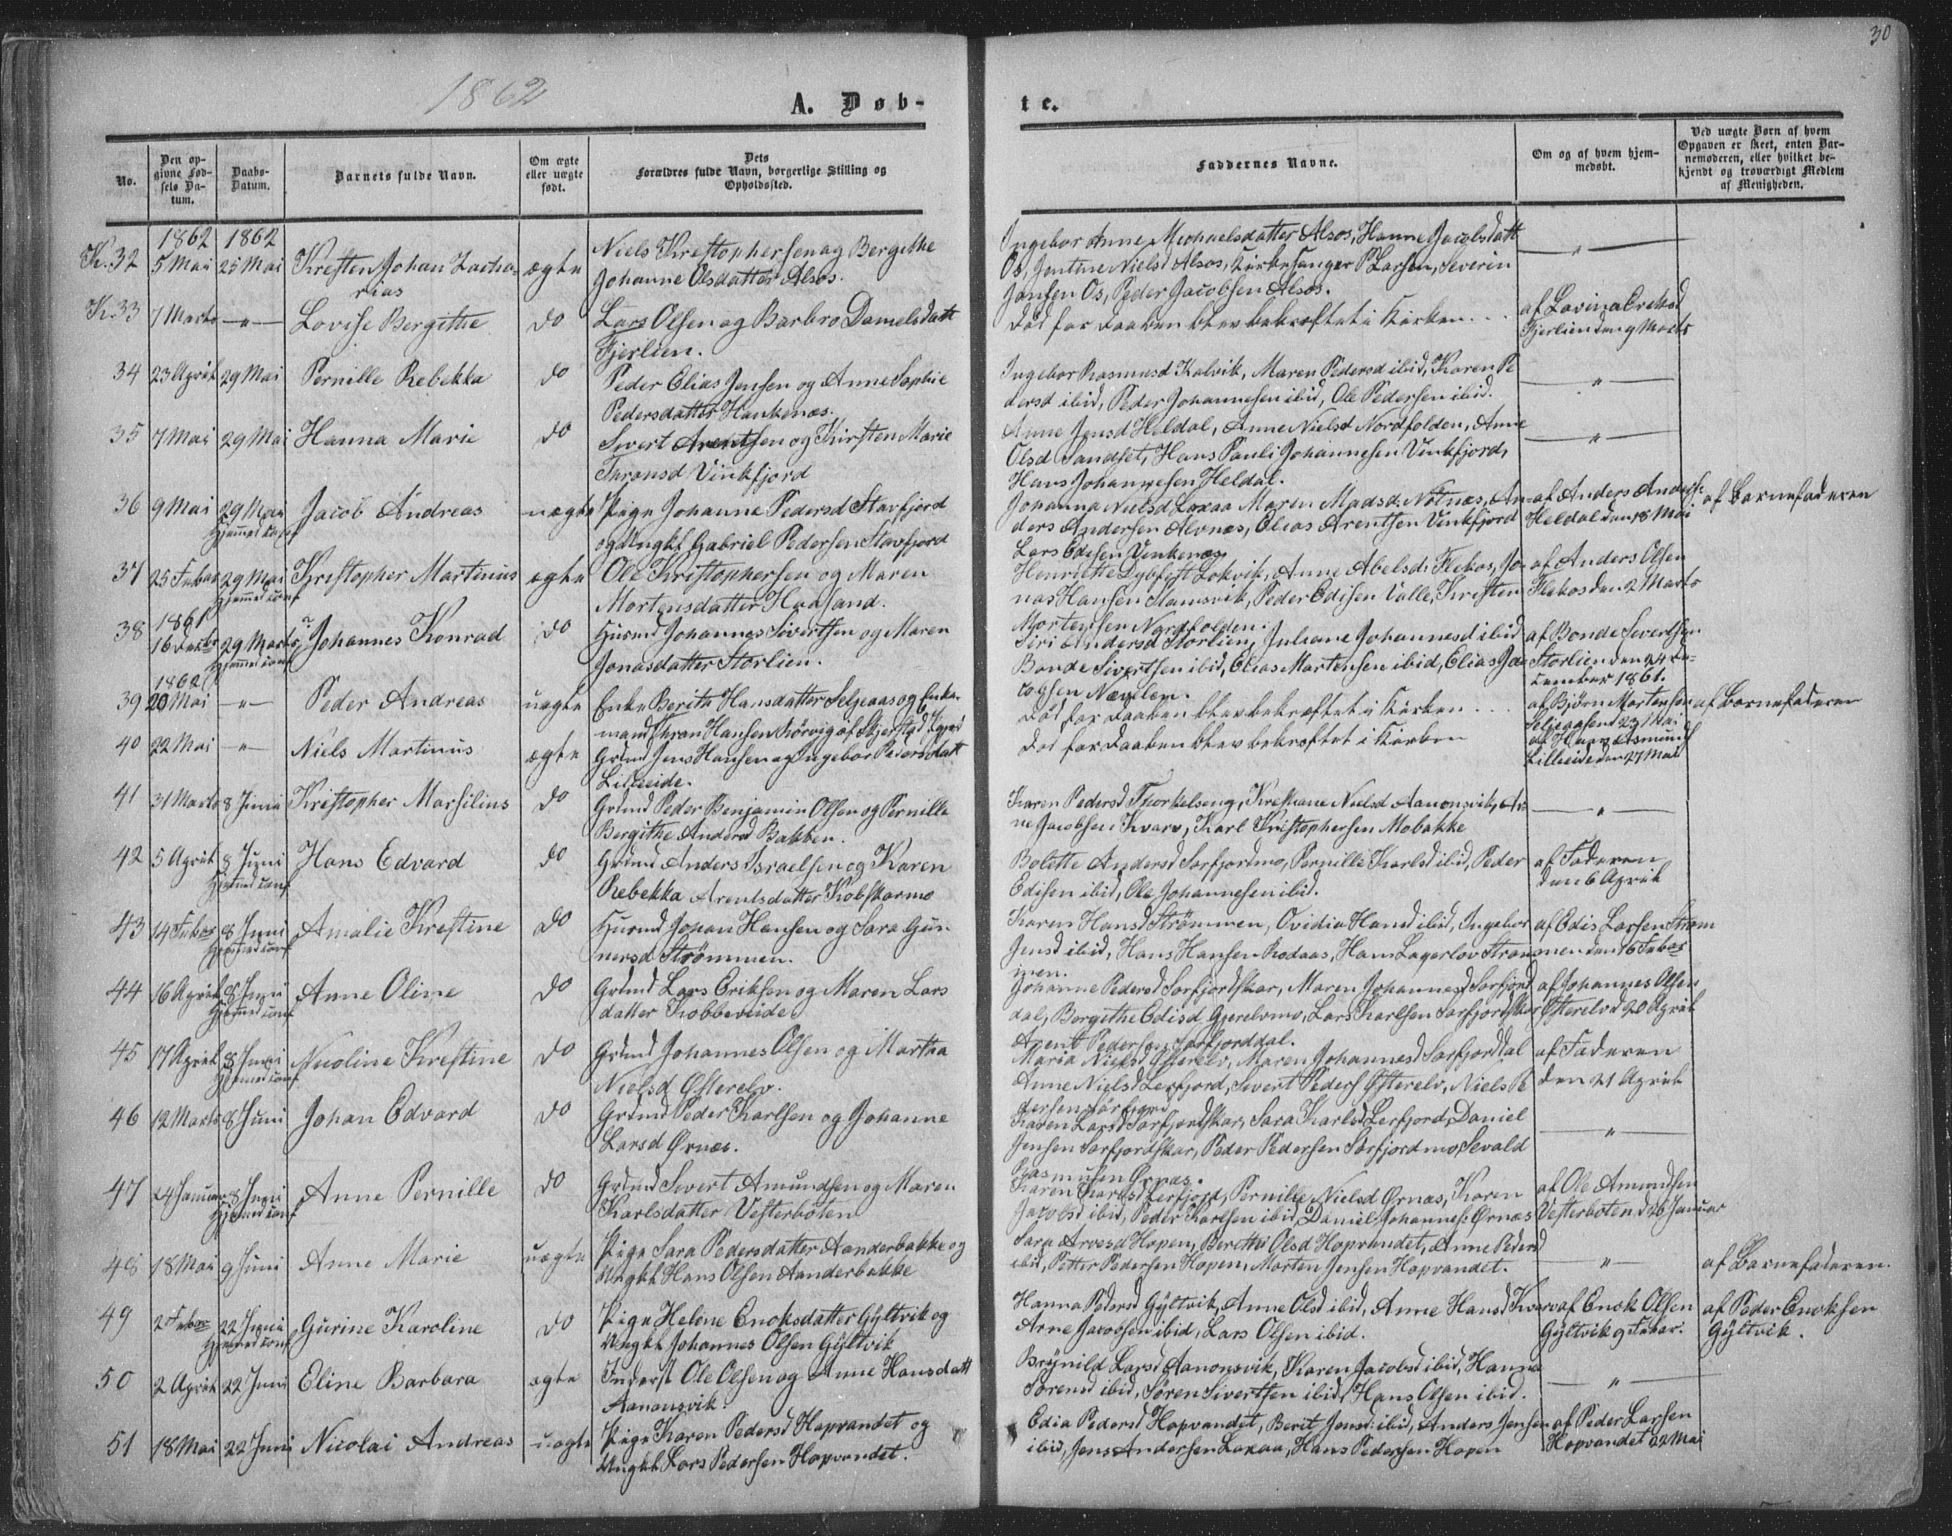 30
1862
A. Døb-
te.
No.
Den op-
givne Fød-
sels Da-
tum.
Daabs-
Datum.
Barnets fulde Navn.
Om ægte
eller uægte
født.
Dets
Forældres fulde Navn, borgerlige Stilling og
Opholdssted.
Faddernes Navne.
Om og af hvem hjem-
medøbt.
Ved uægte Børn af hvem
Opgaven er skeet, enten Bar-
nemoderen, eller hvilket be-
kjendt og troværdigt Medlem
af Menigheden.
1862 1862
K. 32 5 Mai 25 Mai Kresten Johan Zacha-
rias
ægte
Niels Kristophersen og Bergithe
Johanne Olsdatter Alsos.
Ingebor Anne Michaelsdatter Alsos, Hanne Jacobsdatt
Os, Jentine Nielsd Alsos, Kirkesanger P Larsen, Severin
Jensen Os, Peder Jacobsen Alsos.
— " —
K. 33 7 Marts — " — Lovise Bergithe do
Lars Olsen og Barbro Danielsdatt
Fjerlien.
død før Daaben blev bekræftet i Kirken...
af Lovina
Fjerlien den 9 Marts
34 23 April 29 Mai Pernille Rebekka do
Peder Elias Jensen og Anne Sophie
Pedersdatter Hankenæs.
Ingebor Rasmusd Kalvik, Maren Pedersd ibid, Karen Pe
dersd ibid, Peder Johannesen ibid, Ole Pedersen ibid.
— " —
35 7 Mai 29 Mai Hanna Marie do
Sivert Arentsen og Kirsten Marie
Thronsd Vinkfjord
Anne Jensd Heldal, Anne Nielsd Nordfolden, Anne
Olsd Sandset, Hans Pauli Johannesen Vinkfjord,
Hans Johannesen Heldal.
— " —
36 9 Mai 29 Mai Jacob Andreas uægte
Hjemmed conf
Pige Johanne Pedersd Stavfjord
og Ungkf Gabriel Pedersen Stavfjord
Johanna Nielsd Laxaa Maren Madsd. Notnæs, An-
ders Andersen Alvnæs, Elias Arentsen Vinkfjord
Lars Edisen Vinkenæs
af Anders Anders:
Heldal den 18 Mai
af Barnefaderen
37 25 Febar 29 Mai Kristopher Martinus ægte
Hjemmed conf
Ole Kristophersen og Maren
Mortensdatter Haasand.
Henriette Dybfest Løkvik, Anne Abelsd: Flekos, Jo-
nas Hansen Stamsvik, Peder Edisen Valle, Kristen
Mortensen Nordfolden.
af Anders Olsen
Flekos den 2 Marts
1861
38 16 Decbr 29 Marts Johannes Konrad do
Hjemmed conf
Husmd Johannes Sivertsen og Maren
Jonasdatter Storlien.
Siri Andersd Storlien, Juliane Johannesd ibid
Bonde Sivertsen ibid, Elias Mortensen ibid, Elias Ja-
cobsen Nævelen.
af Bonde Sivertsen
Storlien den 24 De-
cember 1861.
1862
39 20 Mai — " — Peder Andreas uægte
Enke Berith Hansdatter Seljeaas og Enke
mand Thron Hansen Rørvig af Skjerstad
død før Daaben blev bekræftet i Kirken...
af Bjørn Mortensen
Seljeaasen d 23 Mai
af Barnefaderen
40 22 Mai — " — Niels Martinus ægte
Grdmd Jens Hansen og Ingebor Pedersdatt
Lilleeide.
død før Daaben blev bekræftet i Kirken
af Hans Asmunds
Lilleeide den 27 Mai
41 31 Marts 8 Juni Kristopher Marsilius do
Grdmd Peder Benjamin Olsen og Pernille
Bergithe Andersd Bakken.
Karen Pedersd Thorkelseng, Kristiane Nielsd Aanonsvik, Ar-
ne Jacobsen Kvarv, Karl Kristophersen Mobakke
— " —
42 5 April 8 Juni Hans Edvard do
Hjemmed conf
Grdmd Anders Israelsen og Karen
Rebekka Arentsdatter Kobskarmo
Bolette Andersd Sørfjordmo, Pernille Karlsd ibid, Peder
Edisen ibid, Ole Johannesen ibid.
af Faderen
den 6 April
43 14 Febar 8 Juni Amalie Krestine do
Hjemmed conf
Husmd Johan Hansen og Sara Gun
nersd Strømmen.
Karen Hansd Strømmen, Ovidia Hansd ibid, Ingebor
Jensd ibid, Hans Hansen Rødaas, Hans Lagerlov Strøm
men.
af Edis Larsen Strøm
men den 16 Febar
44 16 April 8 Juni Anne Oline do
Hjemmed conf
Grdmd Lars Eriksen og Maren Lars
datter Kobbeveide
Johanne Pedersd Sørfjordskar, Maren Johannesd Sørfjord
dal, Bergithe Edisd Gjerelvmo, Lars Karlsen Sørfjordskar
Arent Pedersen Sørfjorddal.
af Johannes Olsen
Østerelv d 20 April
45 17 April 8 Juni Nicoline Krestine do
Hjemmed conf
Grdmd Johannes Olsen og Martha
Nielsd Østerelv.
Maria Nielsd Østerelv, Maren Johannesd Sørfjorddal
Anne Nielsd Lerfjord, Sivert Peders Østerelv, Niels Pe
dersen Sørfjord
af Faderen
den 21 April
46 12 Marts 8 Juni Johan Edvard do
Grdmd Peder Karlsen og Johanne
Larsd Ørnæs.
Karen Larsd Sørfjordskar, Sara Karlsd Lerfjord, Daniel
Jensen Sørfjordskar, Peder Pedersen Sørfjordmo, Sevald
Rasmusen Ørnæs.
— " —
47 24 Januar 8 Juni Anne Pernille do
Hjemmed conf
Grdmd Sivert Amundsen og Maren
Karlsdatter Vesterboten
Karen Karlsd Lerfjord, Pernille Nielsd Ørnæs, Karen
Jacobsd ibid, Peder Karlsen ibid, Daniel Johannes: Ørnæs
af Ole Amundsen
Vesterboten d 26 Januar
48 18 Mai 9 Juni Anne Marie uægte
Pige Sara Pedersdatter Aanderbakke og
Ungkf Hans Olsen Aanderbakke
Sara Arvesd Hopen, Berithe Olsd Hopvandet, Anne Pedersd
ibid, Petter Pedersen Hopen, Morten Jensen Hopvandet.
— " —
af Barnefaderen.
49 2 Febar 22 Juni Gurine Karoline do
Hjemmed conf
Pige Helene Enoksdatter Gyltvik og
Ungkf Johannes Olsen Gyltvik
Hanna Pedersd Gyltvik, Anne Olsd ibid, Anne Hansd Kvarv
Arne Jacobsen ibid, Lars Olsen ibid.
af Enok Olsen
Gyltvik 9 Febar.
af Peder Enoksen
Gyltvik.
50 2 April 22 Juni Eline Barbara ægte
Inderst Ole Olsen og Anne Hansdatt
Aanonsvik.
Brynild Larsd Aanonsvik, Karen Jacobsd ibid, Hanna
Sørensd ibid, Søren Sivertsen ibid, Hans Olsen ibid.
— " —
51 18 Mai 22 Juni Nicolai Andreas uægte
Pige Karen Pedersd Hopvandet og
Ungkf Lars Pedersen Hopvandet.
Edia Pedersd Hopvandet, Berit Jensd: ibid, Anders Jensen
ibid, Jens Andersen Laxaa, Hans Pedersen Hopen
af Peder Larsen
Hopvandet 22 Mai